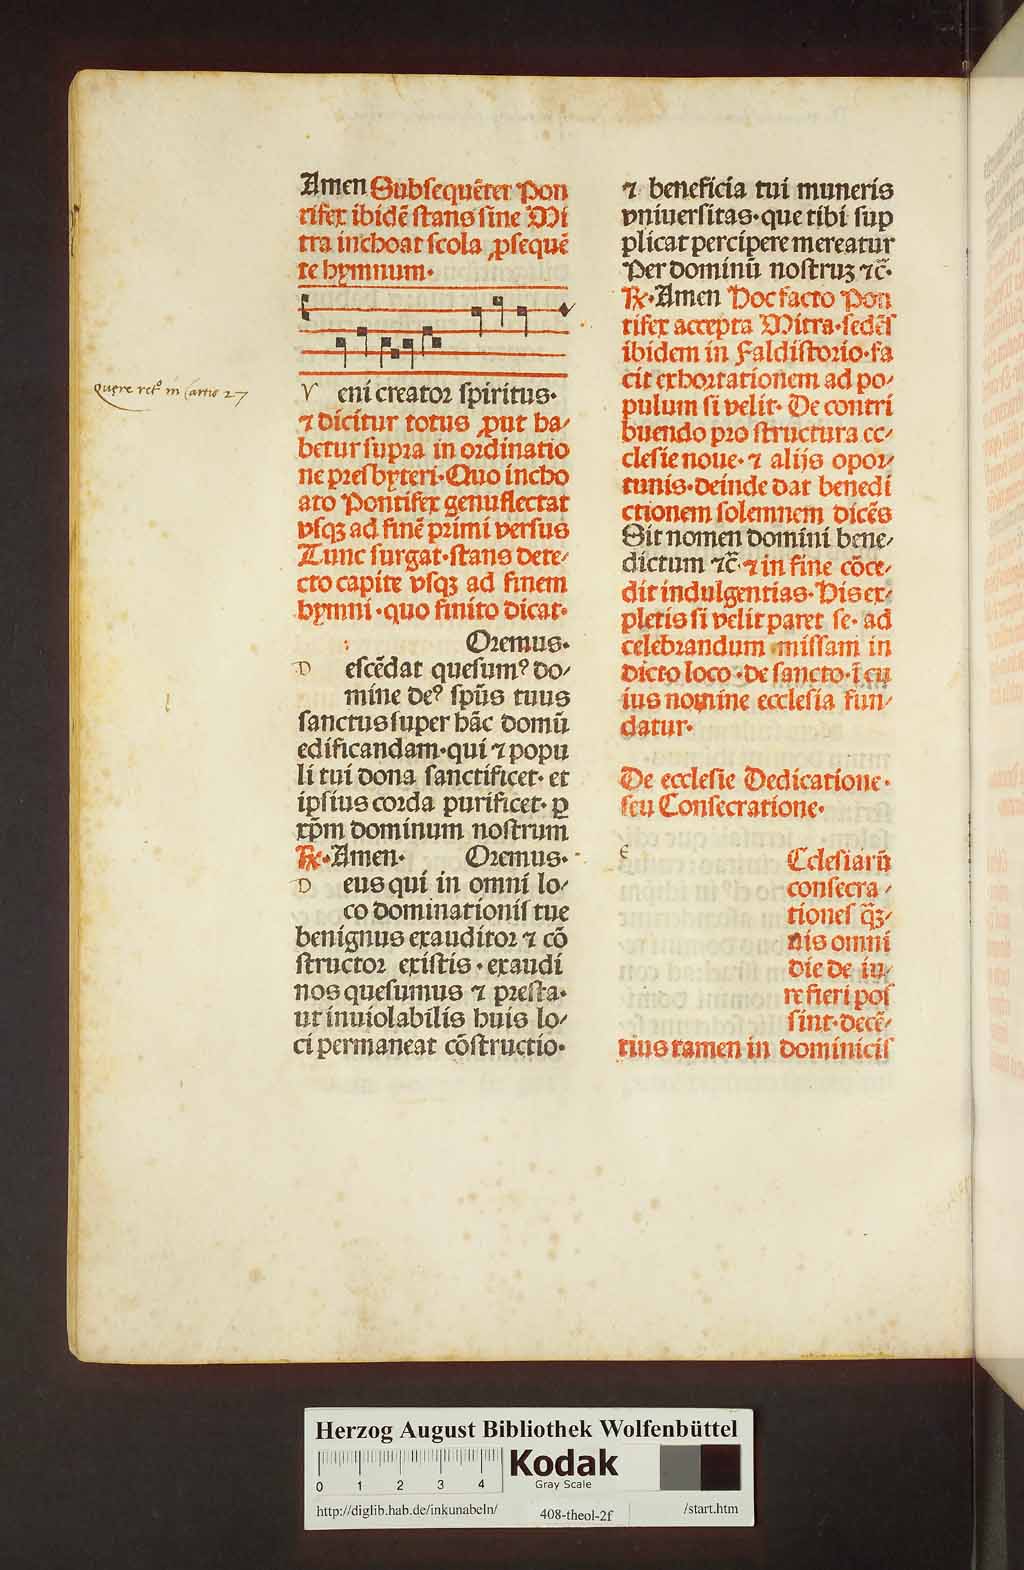 Amen Subsequēter Pon
tifex ibidē stans sine Mi
tra inchoat scola ꝓsequē
te hymnum.
Quere in cartis 27
V eni creator spiritus.
⁊ dicitur totus ꝓut ha⸗
betur supra in ordinatio
ne presbyteri. Quo incho
ato Pontifex genuflectat
vsqꝫ ad finē primi versus
Tunc surgat. stans dete⸗
cto capite vsqꝫ ad finem
hymni. quo finito dicat.
Oremus.
D escēdat quesumꝰ do⸗
mine deꝰ spūs tuus
sanctus super hāc domū
edificandam. qui ⁊ popu
li tui dona sanctificet. et
ipsius corda purificet. ꝑ
xp̄m dominum nostrum
℟. Amen. Oremus.
D eus qui in omni lo⸗
co dominationis tue
benignus exauditor ⁊ cō
structor existis. exaudi
nos quesumus ⁊ presta.
ut inuiolabilis huis lo⸗
ci permaneat cōstructio.
⁊ beneficia tui muneris
vniuersitas. que tibi sup
plicat percipere mereatur
Per dominū nostruꝫ ⁊c̄.
℟. Amen Hoc facto Pon
tifex accepta Mitra. sedēs
ibidem in Faldistorio. fa
cit exhortationem ad po⸗
pulum si velit. De contri
buendo pro structura ec⸗
clesie noue. ⁊ alijs opor⸗
tunis. deinde dat benedi
ctionem solemnem dicēs
Sit nomen domini bene⸗
dictum ⁊c̄. ⁊ in fine cōce⸗
dit indulgentias. His ex⸗
pletis si velit paret se. ad
celebrandum missam in
dicto loco. de sancto. ī cu
ius nomine ecclesia fun⸗
datur.
De ecclesie Dedicatione.
seu Consecratione.
E Cclesiarū
consecra⸗
tiones q̄ꝫ⸗
uis omni
die de iu⸗
re fieri pos
sint. decē⸗
tius tamen in dominicis
Herzog August Bibliothek Wolfenbüttel
0 1 2 3 4
Kodak
Gray Scale
http://diglib.hab.de/inkunabeln/ 408-theol-2f /start.htm